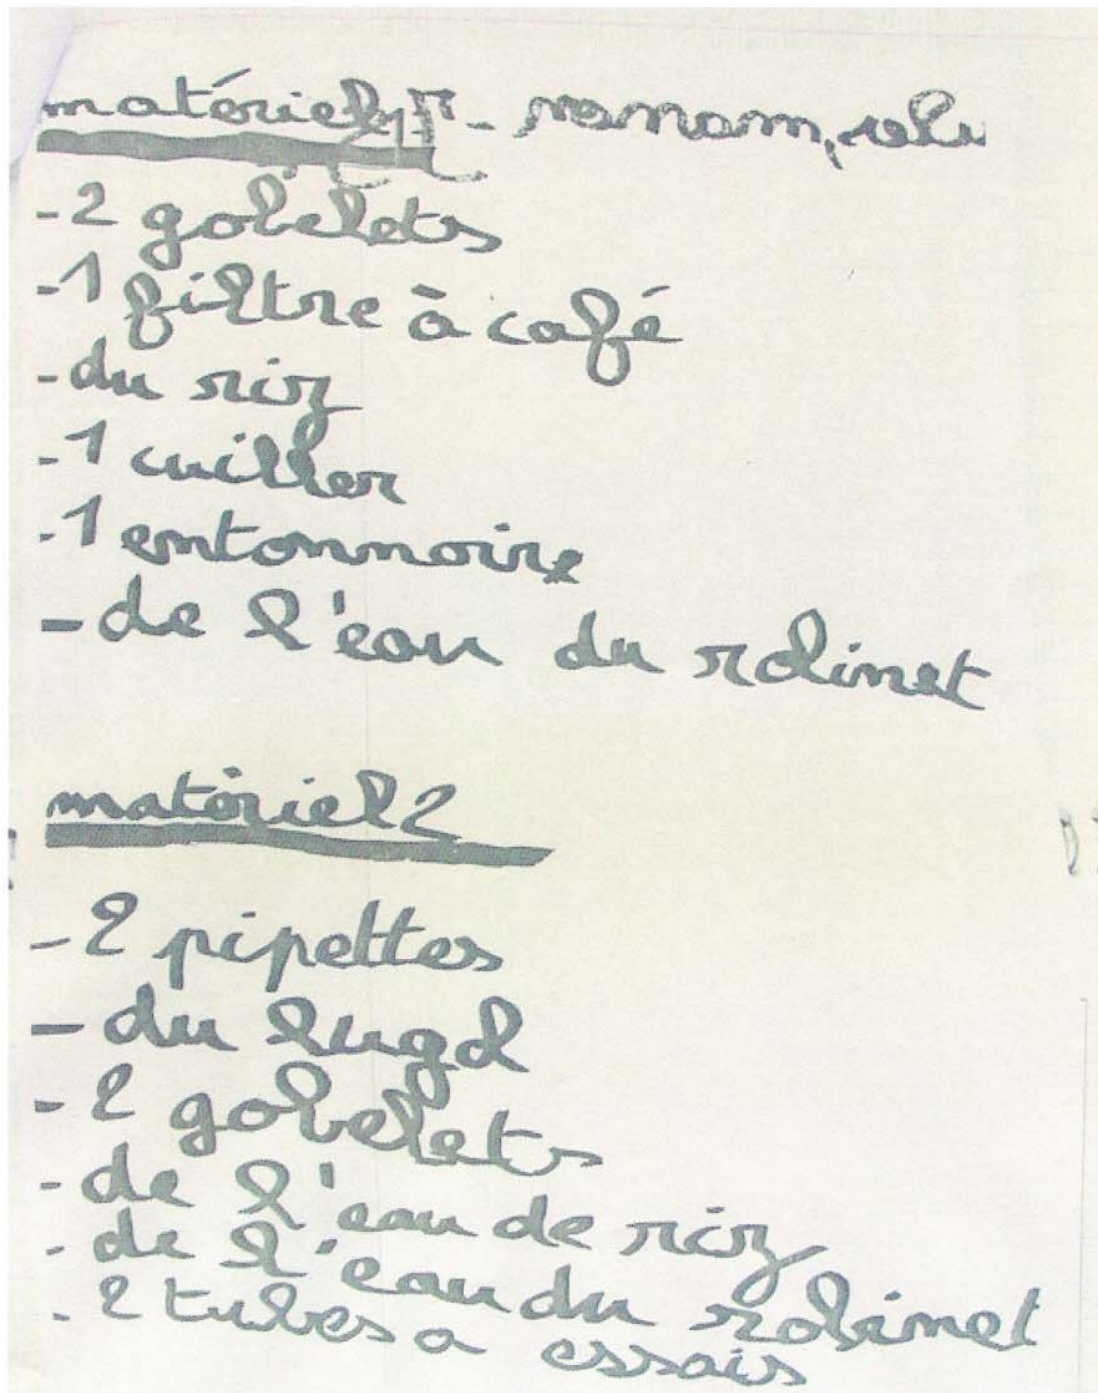 matériel
- 2 gobelets
- 1 filtre à café
- du riz
- 1 cuiller
- 1 entonnoire
- de l'eau du robinet
matériel 2
- 2 pipettes
- du lugol
- 2 gobelets
- de l'eau de riz
- de l'eau du robinet
- 2 tubes a essais